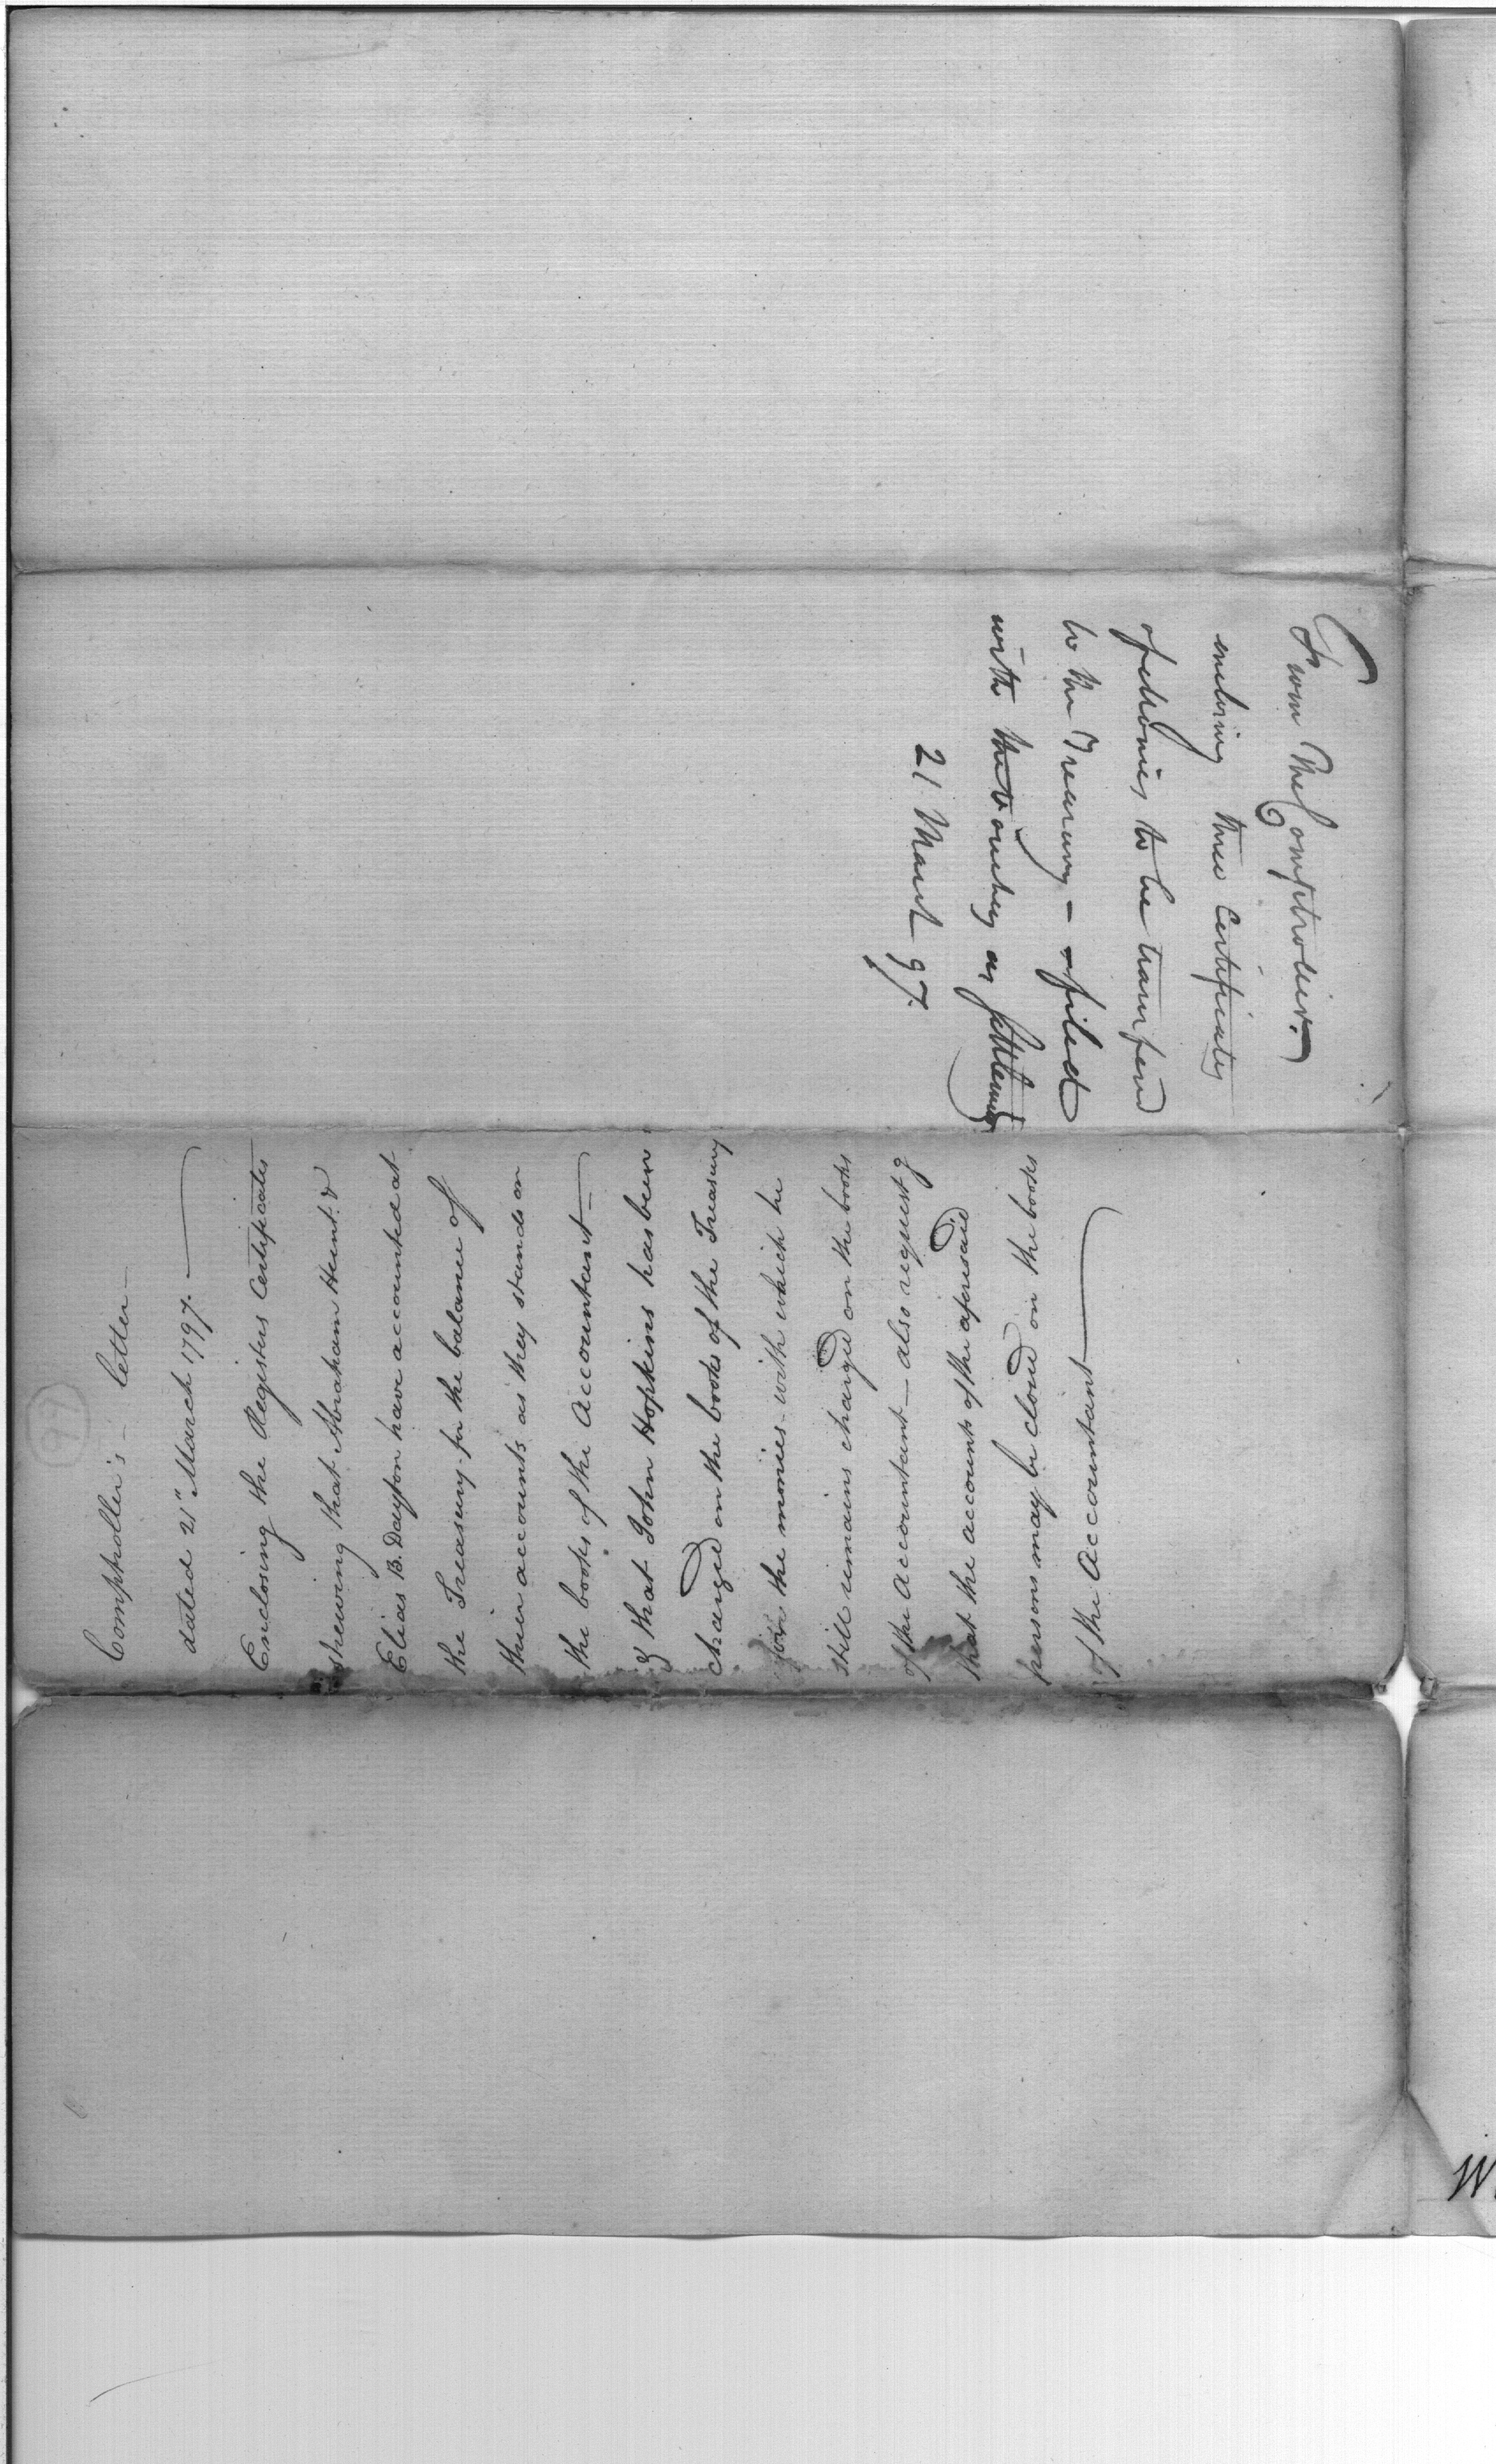 From the Comptroller.
enclosing three Certificates
of monies to be transferd
to the Treasury - filed
with the vouchers as settlements
21 March 97.
Comptroller's letter
dated 21" March 1797.
Enclosing the Registers Certificates
shewing that Abraham Hunt &
Elias B. Dayton have accounted at
the Treasury for the balance of
their accounts as they stands on
the books of the Accountant
& that John Hopkins has been
charged on the books of the Treasury
for the monies with which he
still remains charged on the books
of the Accountant — also requestg
that the accounts of the aforesaid
persons may be closed on the books
of the Accountant